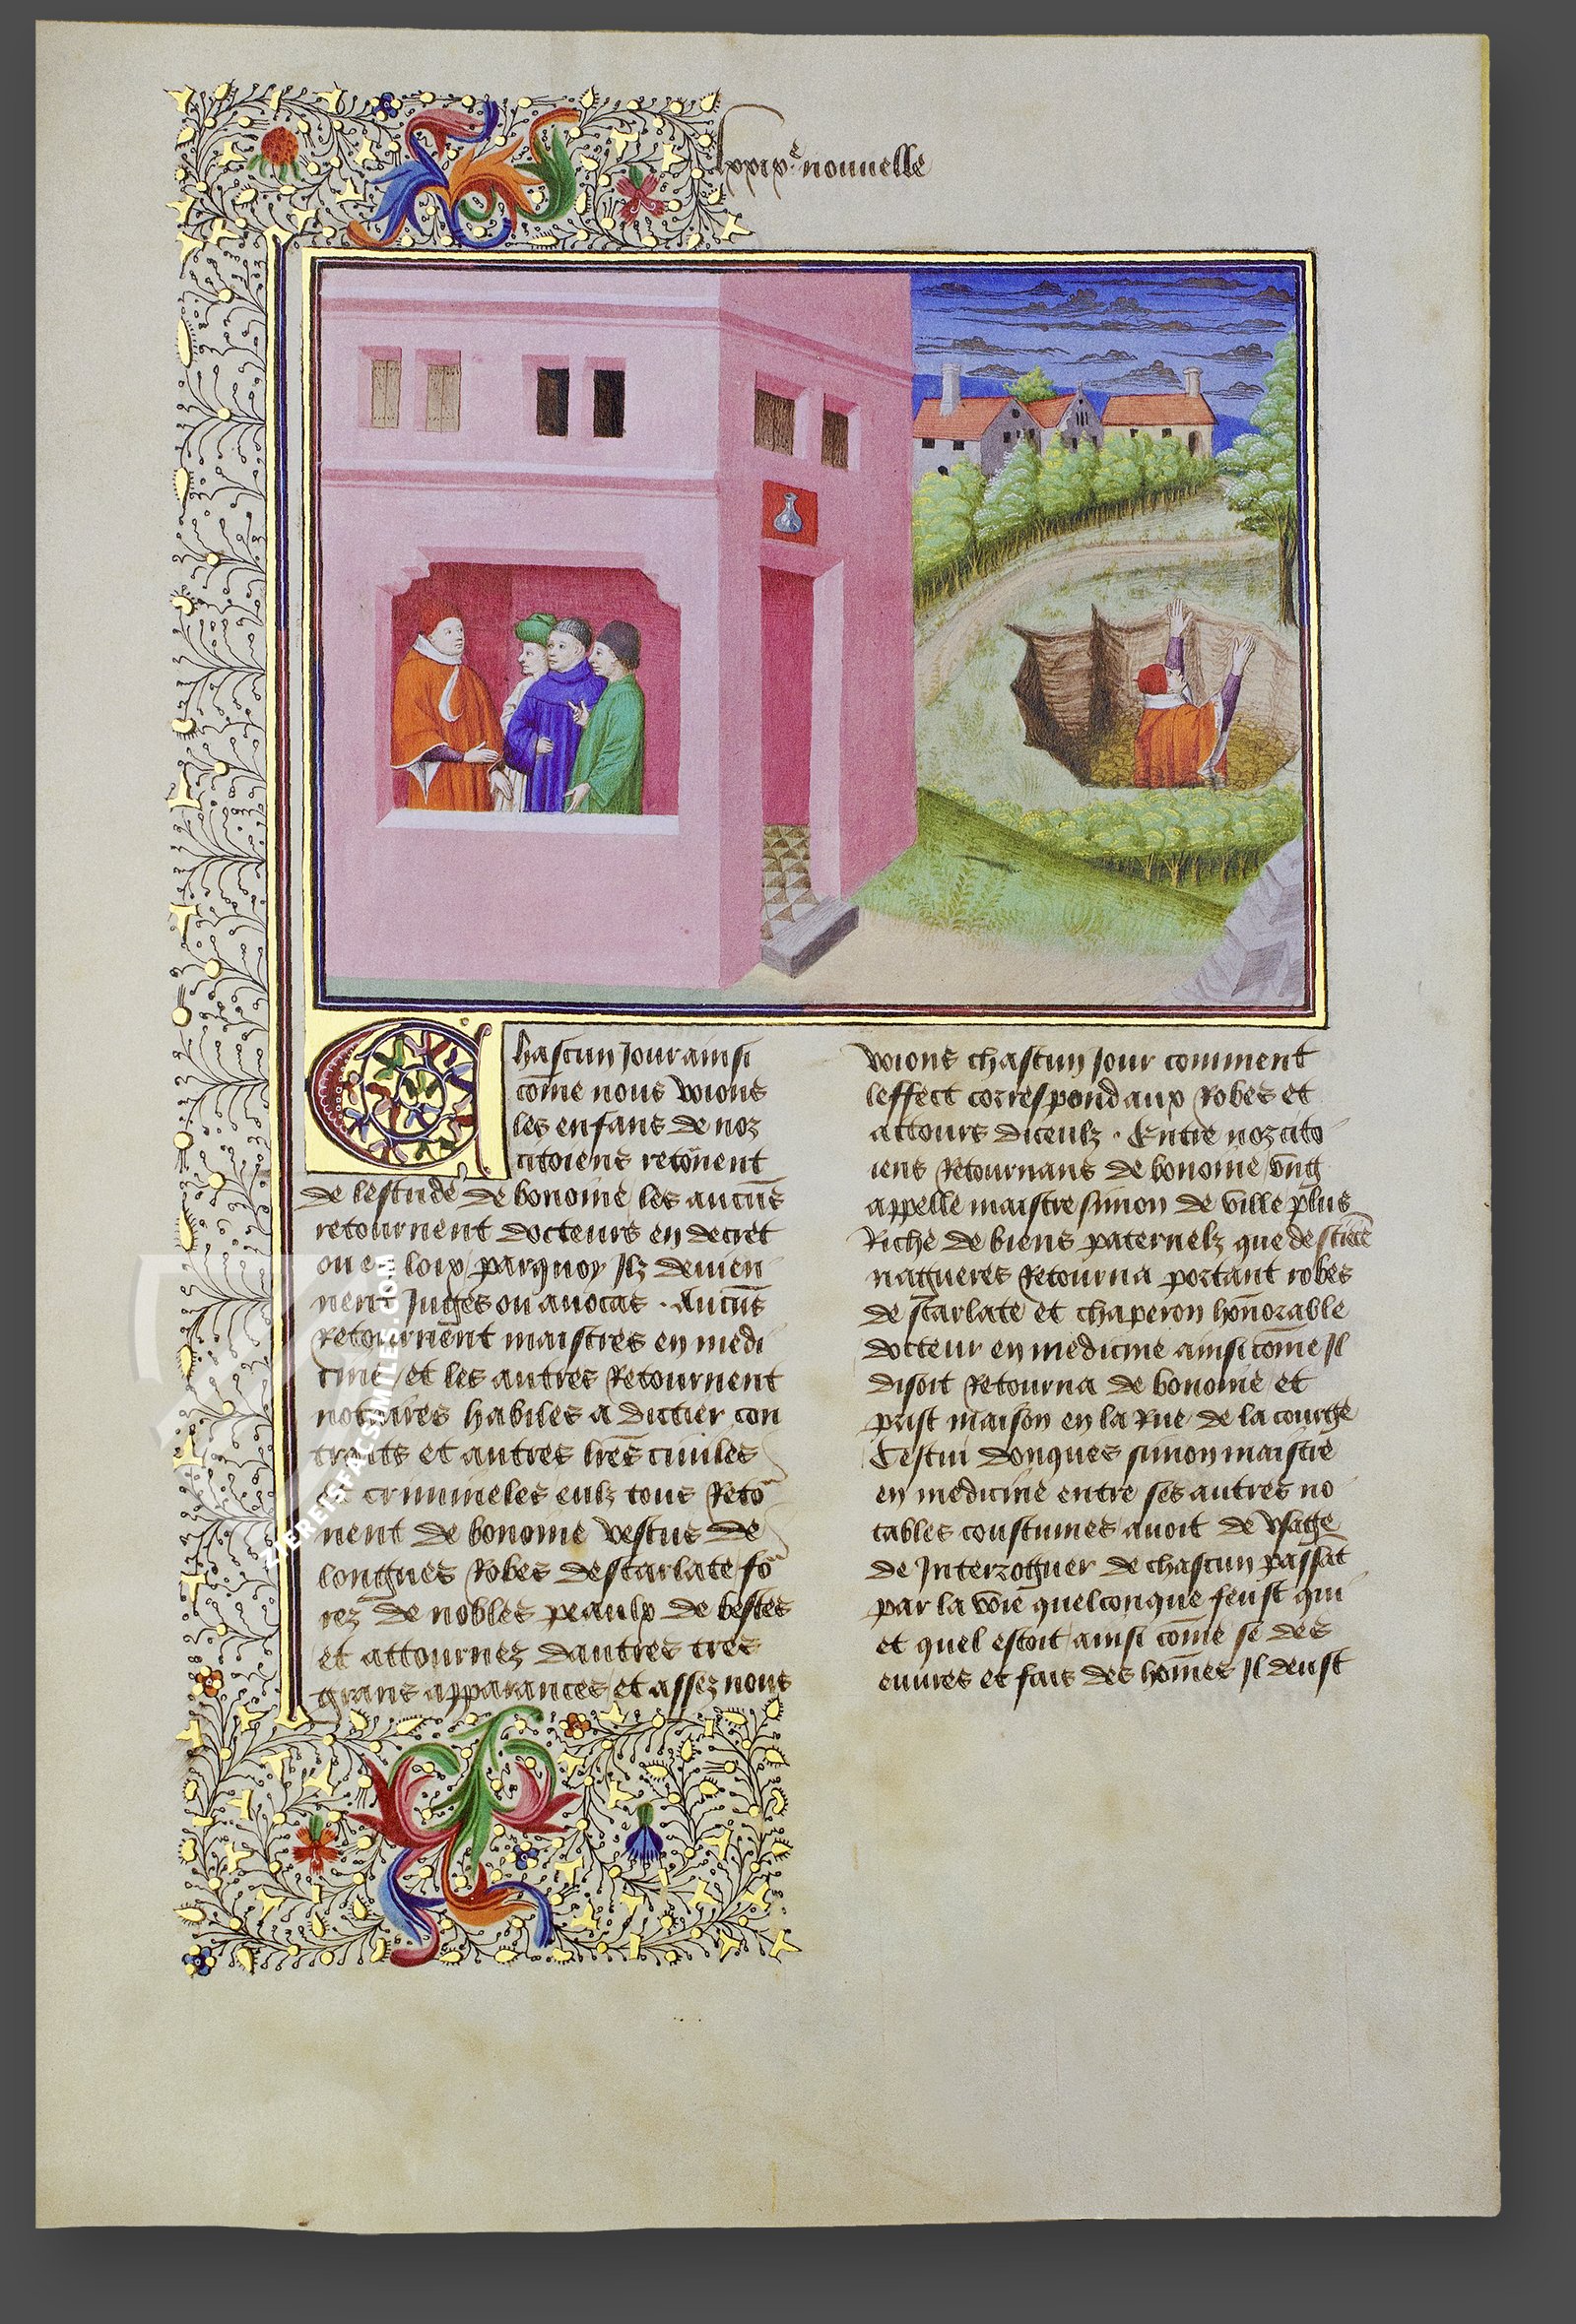 lxxix.e nouvelle
Chascun jour ainsi
cõme nous veions
les enfans de noz
citoiens retõnent
de lestude de bonoine les aucũs
retournent docteurs en decret
ou en loix parquoy Ilz devien
nent Juges ou avocas . Aucũs
Retournent maistres en medi
cine / et les autres Retournent
notaires habiles a dictier con
tracts et autres lres civiles
et crimineles eulz tous Reto
nent de bonoine vestus de
longues Robes descarlate fo
rez de nobles peaulx de bestes
et attournez dautres tres
grans apparances / et assez nous
veions chascun jour comment
leffect correspond aux Robes et
attours diceulz . Entre noz cito
iens Retournans de bonoine / ung
appelle maistre simon de ville plus
Riche de biens paternelz que de sciẽce
nagueres Retourna portant robes
de scarlate et chaperon hõnorable
docteur en medicine ainsi cõme Il
disoit Retourna de bonoine / et
prist maison en la Rue de la courge
Cestui donques simon maistre
en medicine entre ses autres no
tables coustumes avoit de usage
de Interroguer de chascun passãt
par la voie quelconque feust qui
et quel estoit / ainsi cõme se des
euvres et fais des hõmes Il deust
ZIEREIS FACSIMILES.COM